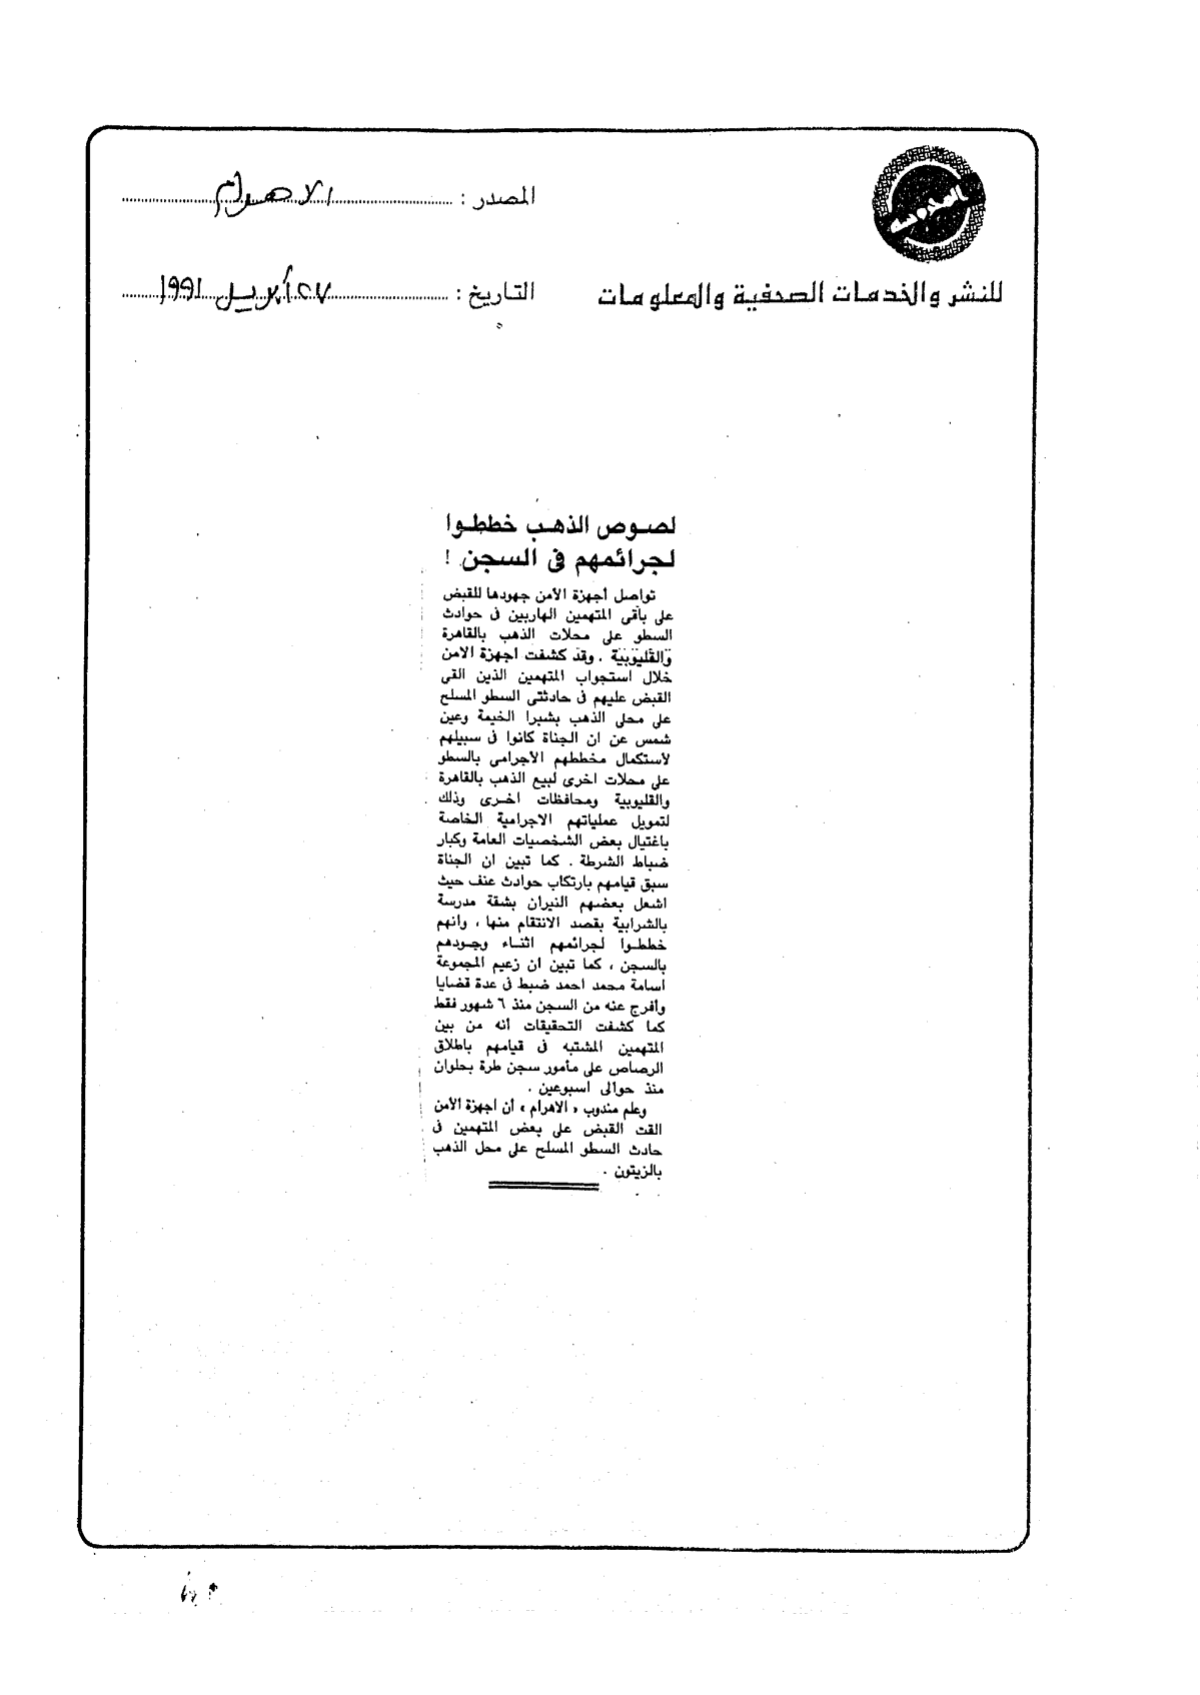 المصدر : الاهرام
للنشر والخدمات الصحفية والمعلومات
التاريخ : ٢٧ أبريل ١٩٩١
لصوص الذهب خططوا
لجرائمهم فى السجن !
تواصل أجهزة الأمن جهودها للقبض
على باقى المتهمين الهاربين فى حوادث
السطو على محلات الذهب بالقاهرة
والقليوبية . وقد كشفت اجهزة الامن
خلال استجواب المتهمين الذين القى
القبض عليهم فى حادثتى السطو المسلح
على محلى الذهب بشبرا الخيمة وعين
شمس عن ان الجناة كانوا فى سبيلهم
لاستكمال مخططهم الأجرامى بالسطو
على محلات اخرى لبيع الذهب بالقاهرة
والقليوبية ومحافظات اخرى وذلك
لتمويل عملياتهم الاجرامية الخاصة
باغتيال بعض الشخصيات العامة وكبار
ضباط الشرطة . كما تبين ان الجناة
سبق قيامهم بارتكاب حوادث عنف حيث
اشعل بعضهم النيران بشقة مدرسة
بالشرابية بقصد الانتقام منها ، وانهم
خططوا لجرائمهم اثناء وجودهم
بالسجن ، كما تبين ان زعيم المجموعة
اسامة محمد احمد ضبط فى عدة قضايا
وأفرج عنه من السجن منذ ٦ شهور فقط
كما كشفت التحقيقات أنه من بين
المتهمين المشتبه فى قيامهم باطلاق
الرصاص على مأمور سجن طرة بحلوان
منذ حوالى اسبوعين .
وعلم مندوب « الاهرام » أن اجهزة الأمن
القت القبض على بعض المتهمين فى
حادث السطو المسلح على محل الذهب
بالزيتون .